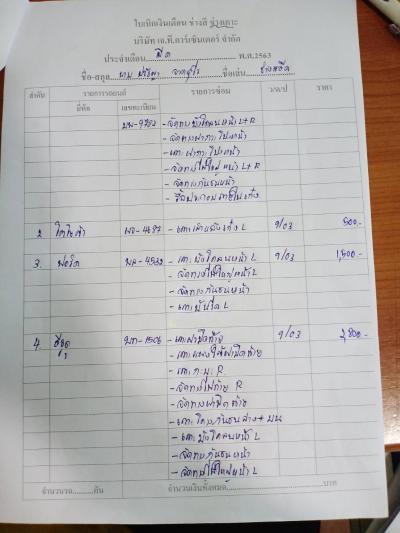 ใบเบิกเงินเดือน ช่างสี ช่างเคาะ
บริษัท เจ.ที.คาร์เซ็นเตอร์ จำกัด
ประจำเดือน มีค พ.ศ.2563
ชื่อ-สกุล นาย ชื่อเล่น
ลำดับ รายการรถยนต์ รายการซ่อม ว/ด/ป ราคา
ยี่ห้อ เลขทะเบียน
- จัดทรงบังโคลนหน้า L+R
- จัดทรงฝากระโปรงหน้า
- เคาะฝากระโปรงหน้า
- จัดทรงไฟใหญ่หน้า L+R
- จัดทรงกันชนหน้า
2 9/03 500.-
3. ฟอร์ด - เคาะบังโคลนหน้า L 9/03 1,500.-
- จัดทรงไฟใหญ่หน้า L
- จัดทรงกันชนหน้า
- เคาะบันได L
4. อีซูซุ - เคาะฝาปิดท้าย 9/03 2,800.-
- เคาะแผงใต้ฝาปิดท้าย
- เคาะกะบะ R
- จัดทรงไฟท้าย R
- จัดทรงฝาปิดท้าย
- เคาะโครงกันชนล่าง + บน
- เคาะบังโคลนหน้า L
- จัดทรงกันชนหน้า
- จัดทรงไฟใหญ่หน้า L
จำนวนรถ..........คัน จำนวนเงินทั้งหมด..............................บาท